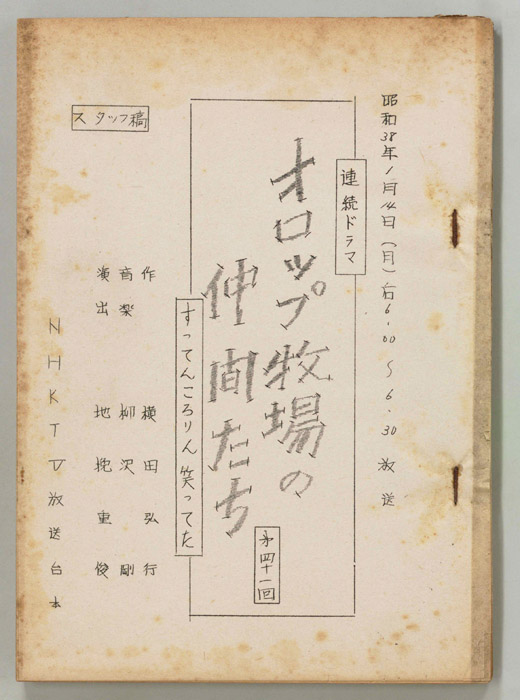 昭和38年1月14日(月)后6.00〜6.30放送
連続ドラマ
オロップ牧場の
仲間たち
第四十一回
すってんころりん笑ってた
作 横田弘行
音楽 柳沢剛
演出 地挽重俊
スタッフ稿
NHKTV放送台本